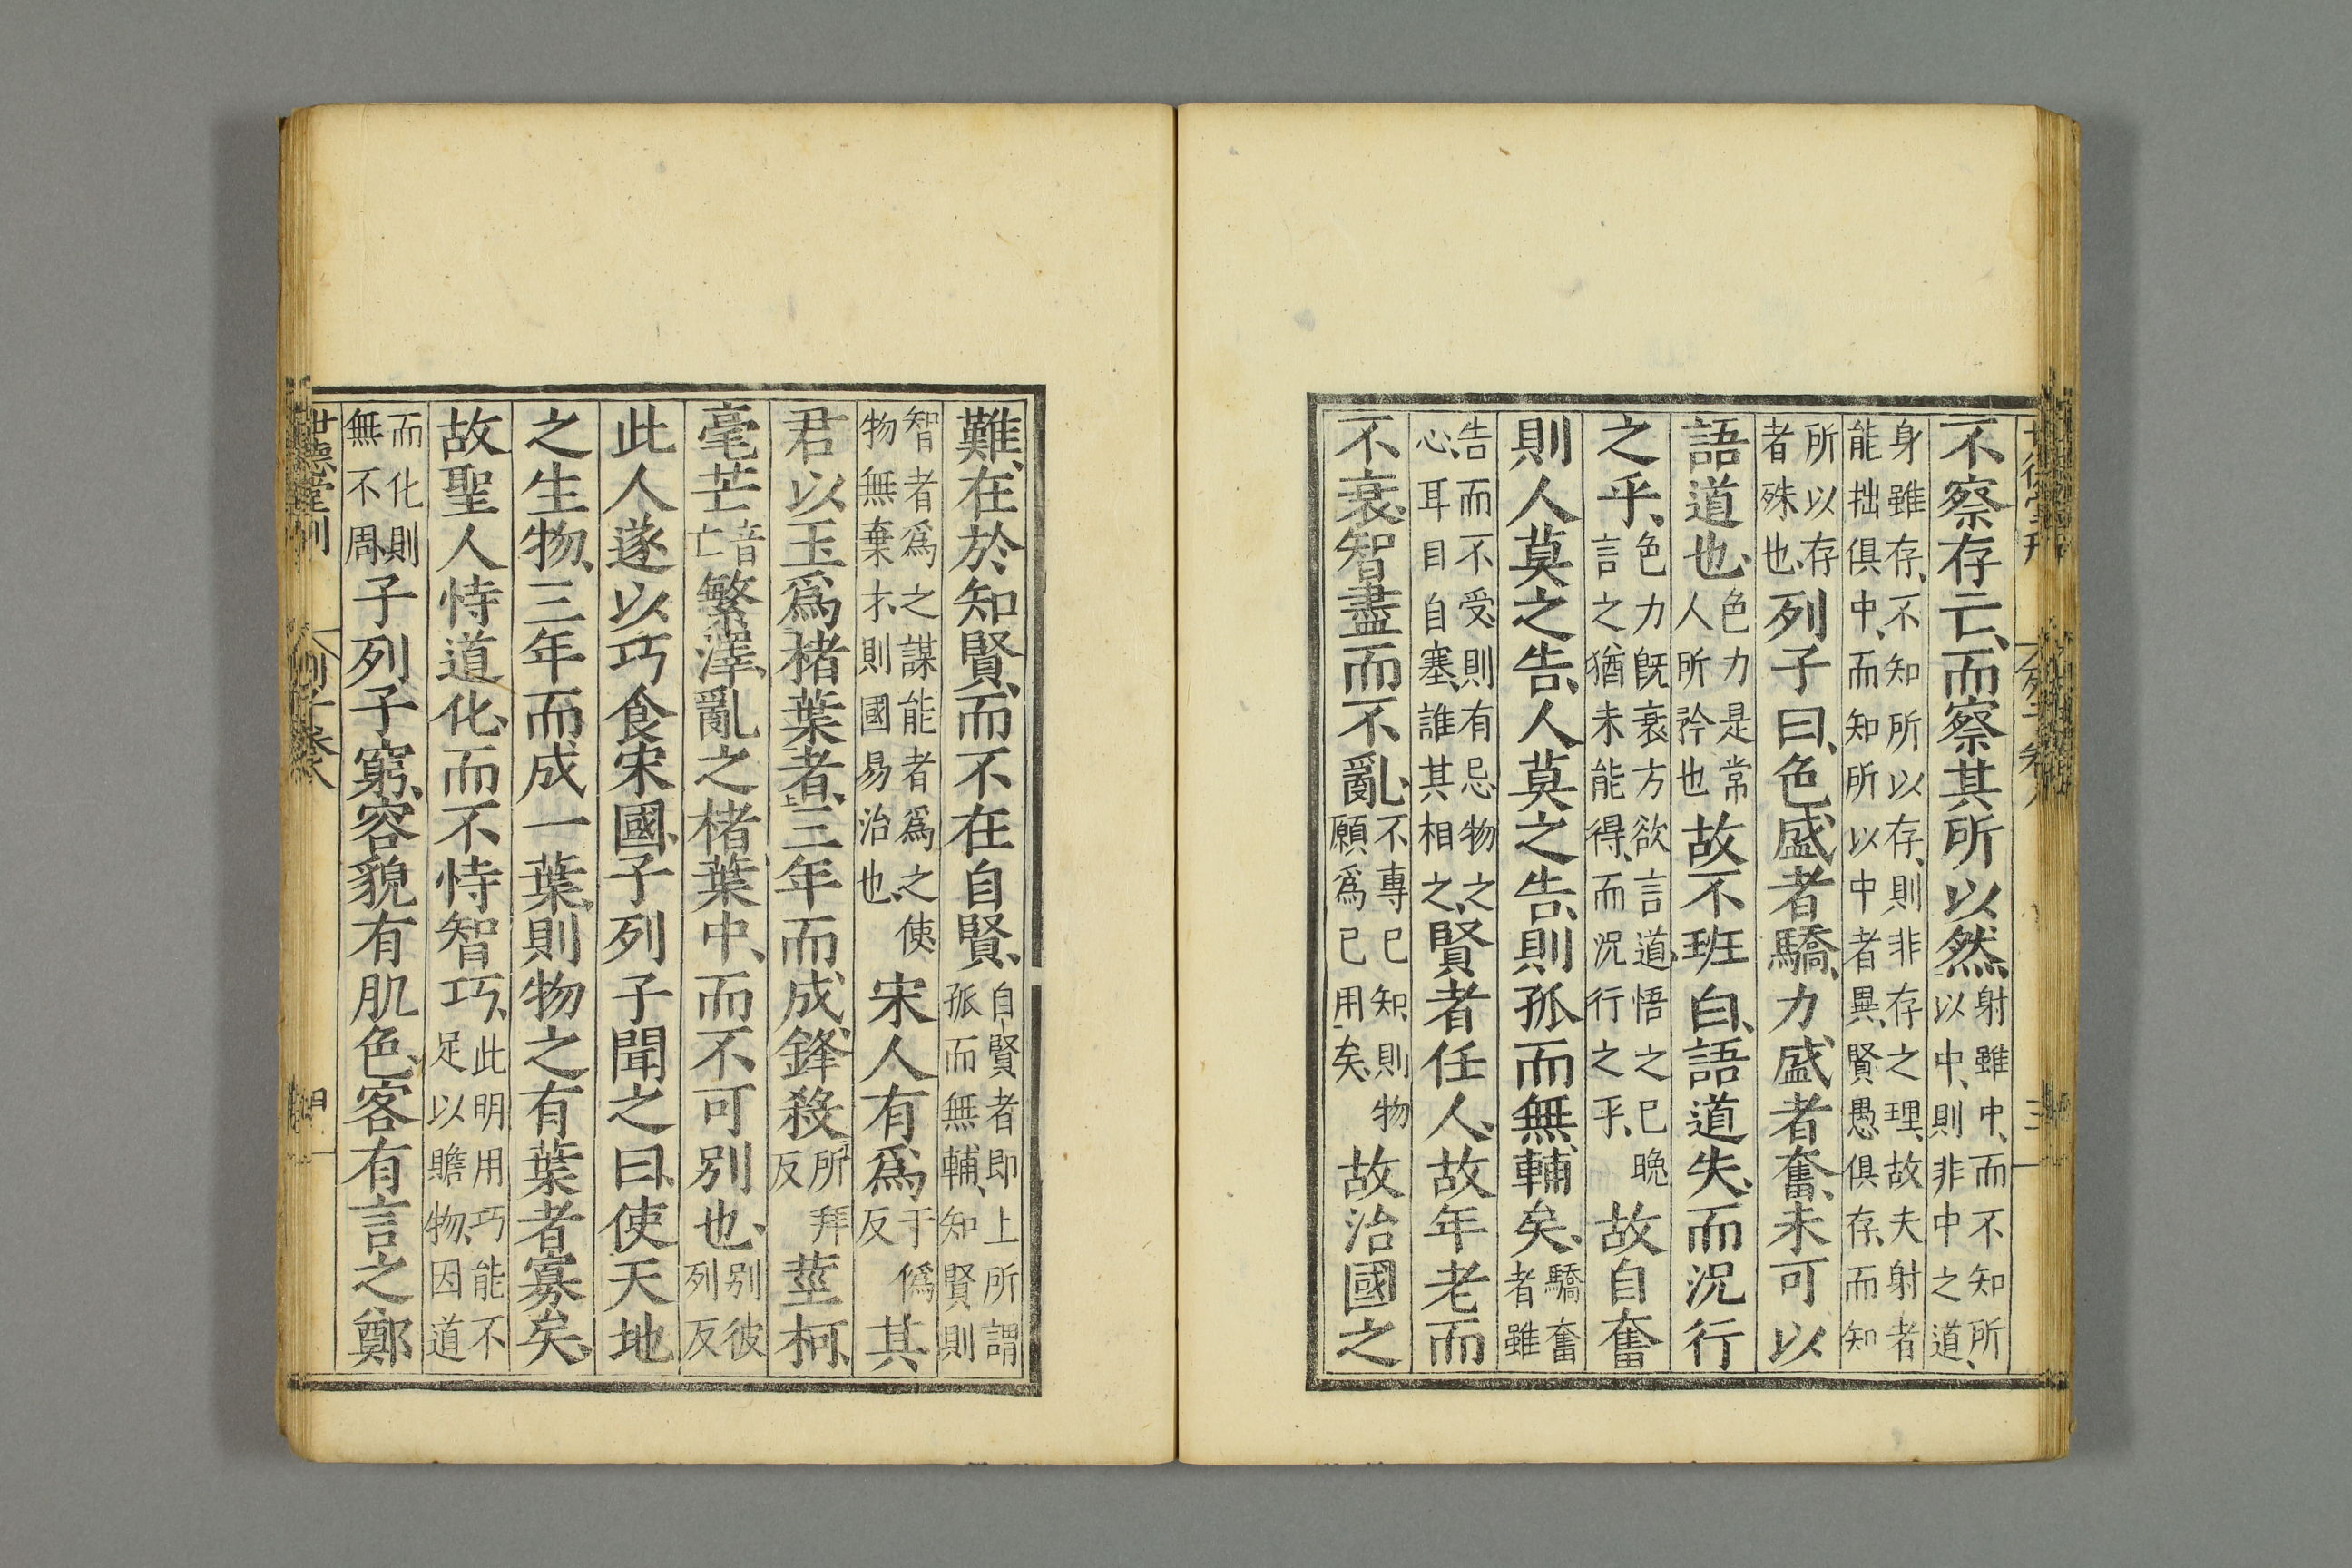 不察存亡、而察其所以然、射雖中、而不知所以中、則非中之道、
身雖存、不知所以存、則非存之理、故夫射者能拙俱中、而知所以中者異、賢愚俱存、而知
所以存者殊也、列子曰、色盛者驕、力盛者奮、未可以
語道也、色力是常人所矜也故不班白、語道失、而況行
之乎、色力既衰方欲言道、悟之已晚言之猶未能得、而況行之乎、故自奮
則人莫之告、人莫之告、則孤而無輔矣、驕奮者雖
告而不受、則有忌物之心、耳目自塞、誰其相之、賢者任人、故年老而
不衰、智盡而不亂、不專已知、則物願爲已用矣、故治國之
難、在於知賢、而不在自賢、自賢者即上所謂孤而無輔、知賢則
智者爲之謀能者爲之使、物無棄才、則國易治也、宋人有爲于僞反其
君以玉爲楮葉者、三年而成、鋒殺所拜反莖柯、
毫芒音亡繁澤、亂之楮葉中、而不可別也、別彼列反
此人遂以巧食宋國、子列子聞之曰、使天地
之生物、三年而成一葉、則物之有葉者寡矣、
故聖人恃道化、而不恃智巧、此明用巧能不足以贍物、因道
而化則無不周、子列子窮、容貌有肌色、客有言之鄭
世德堂刊 列子卷八